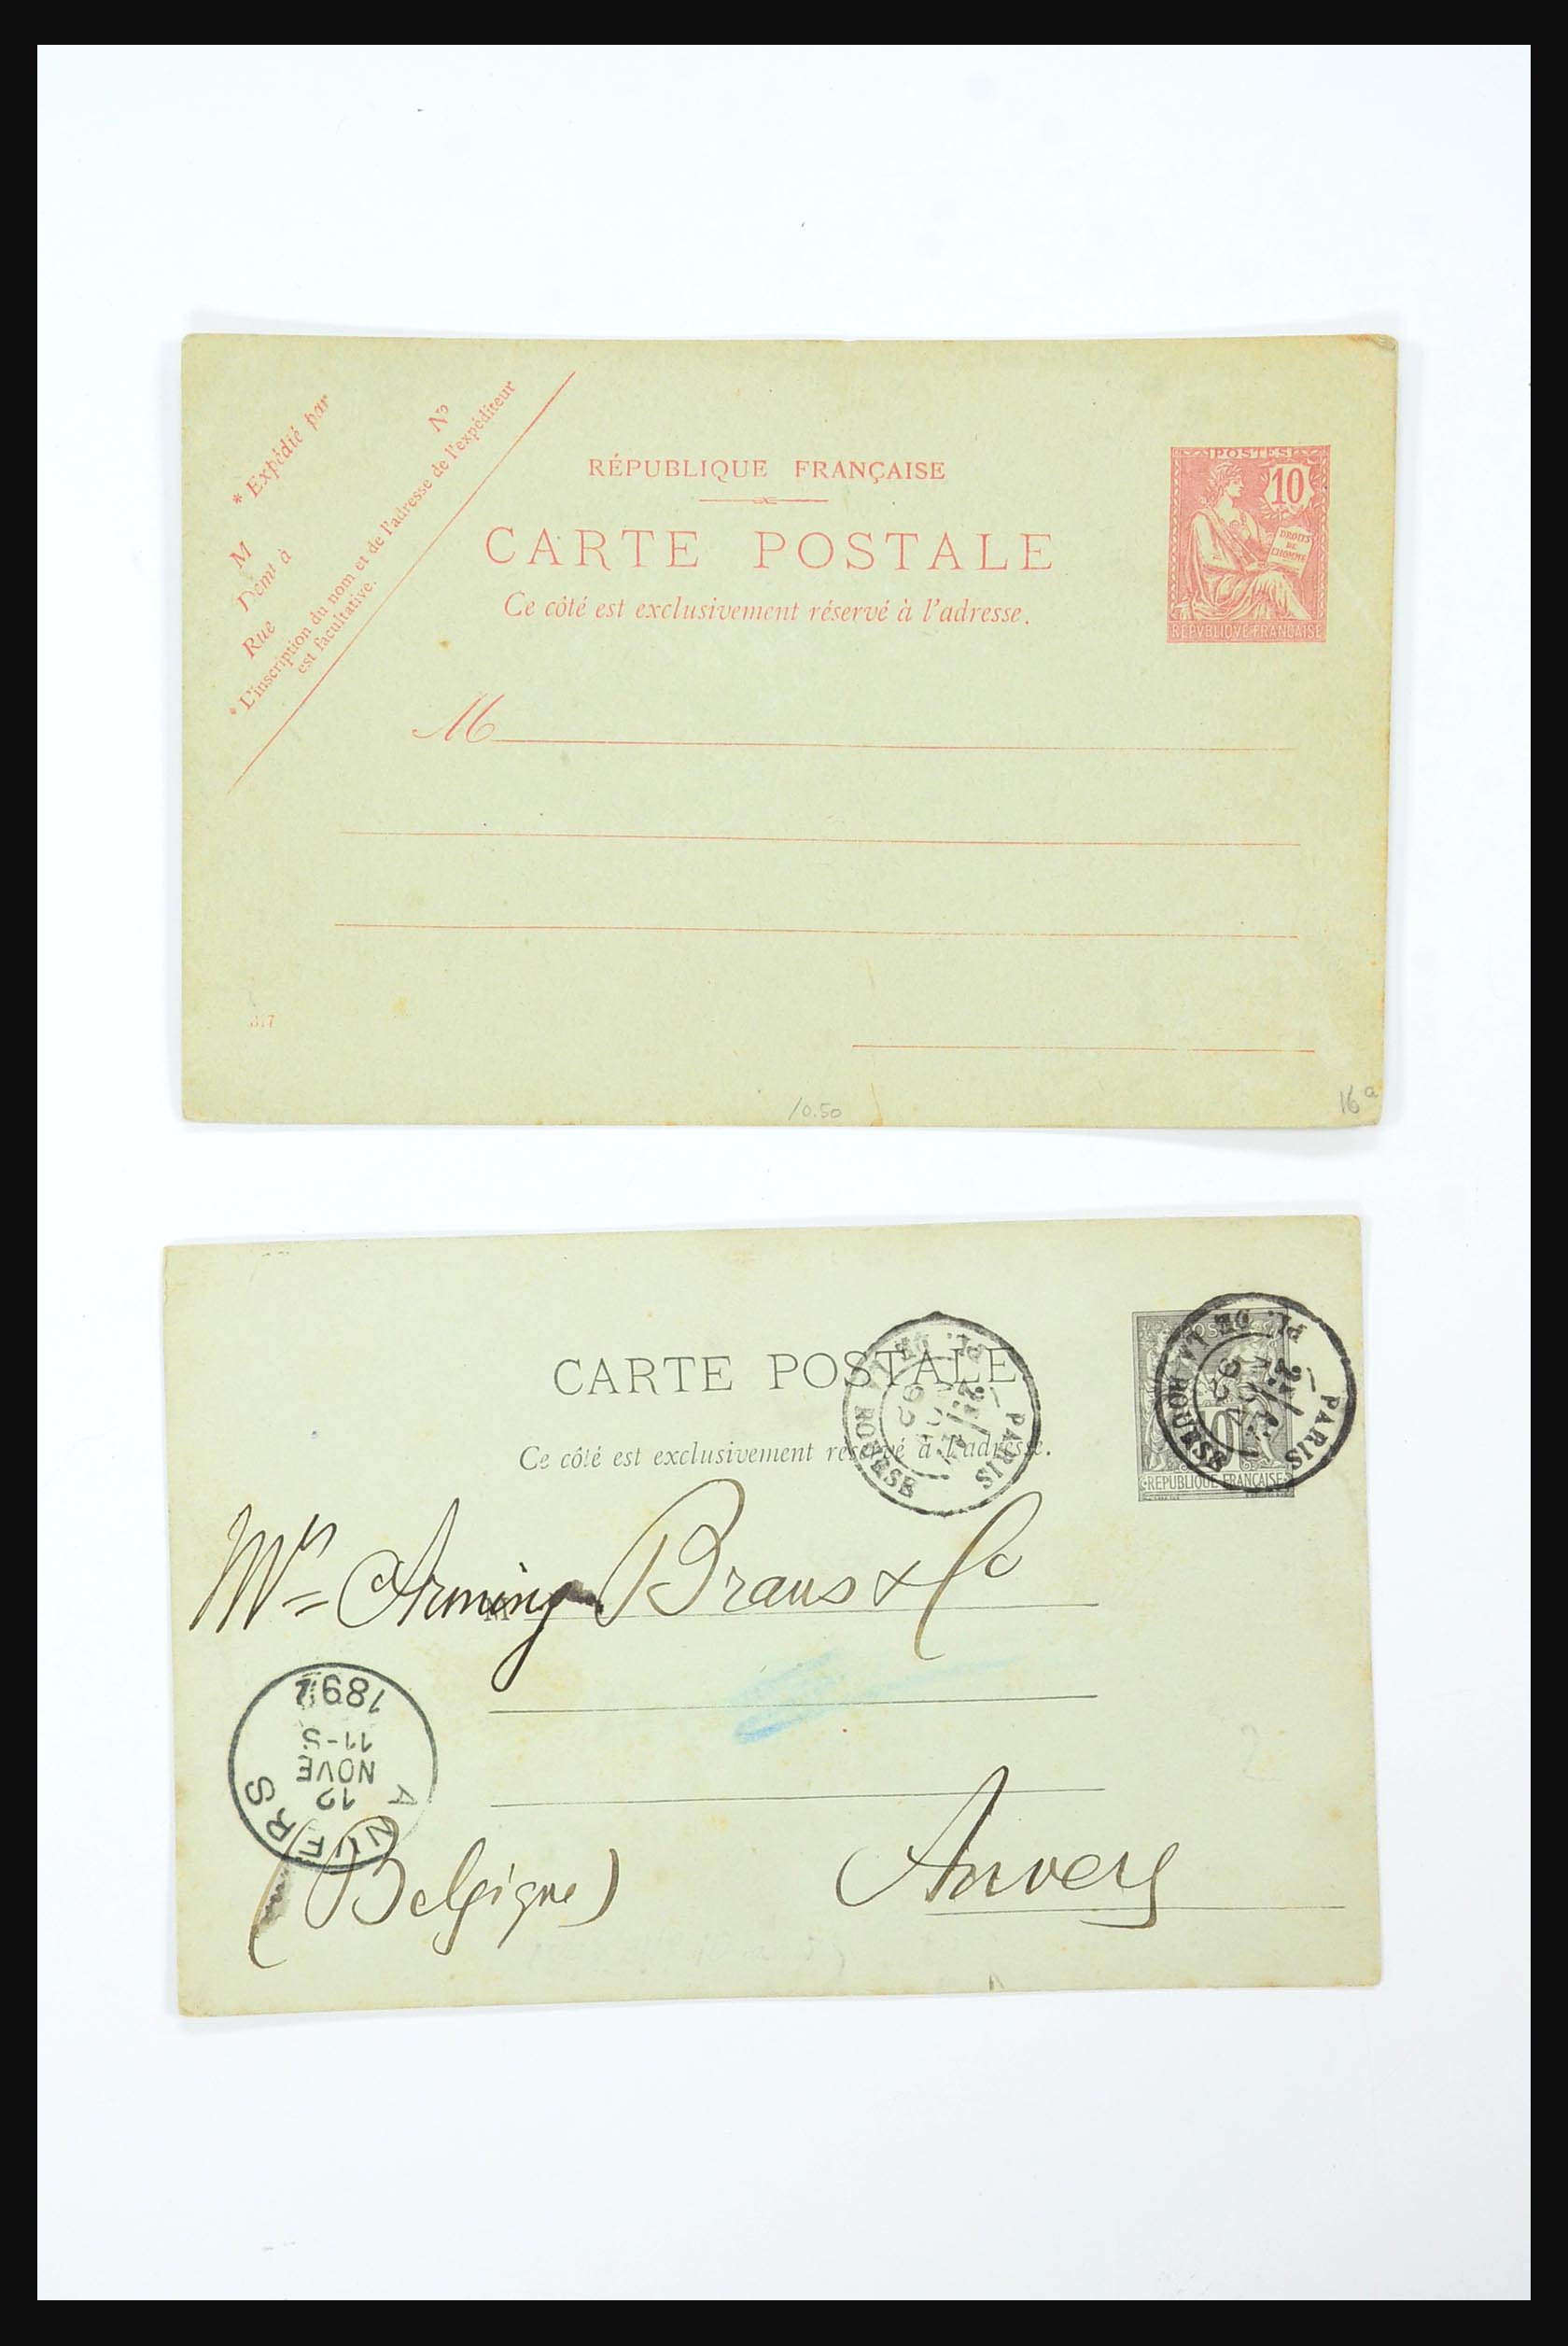 * Expédié par
M
Nº
Demt à
Rue
* L'inscription du nom et de l'adresse de l'expéditeur
est facultative.
RÉPUBLIQUE FRANÇAISE
CARTE POSTALE
Ce côté est exclusivement réservé à l'adresse.
POSTES
10
DROITS
DE
L'HOMME
REPVBLIQVE FRANÇAISE
M
317
10.50
16a
CARTE POSTALE
Ce côté est exclusivement réservé à l'adresse.
PARIS
PL. DE LA BOURSE
92
10
REPUBLIQUE FRANÇAISE
PARIS
PL. DE LA BOURSE
92
Mrs Arming Braus & Co
M
ANVERS
12
NOVE
11-S
1892
2
Anvers
(Belgique)